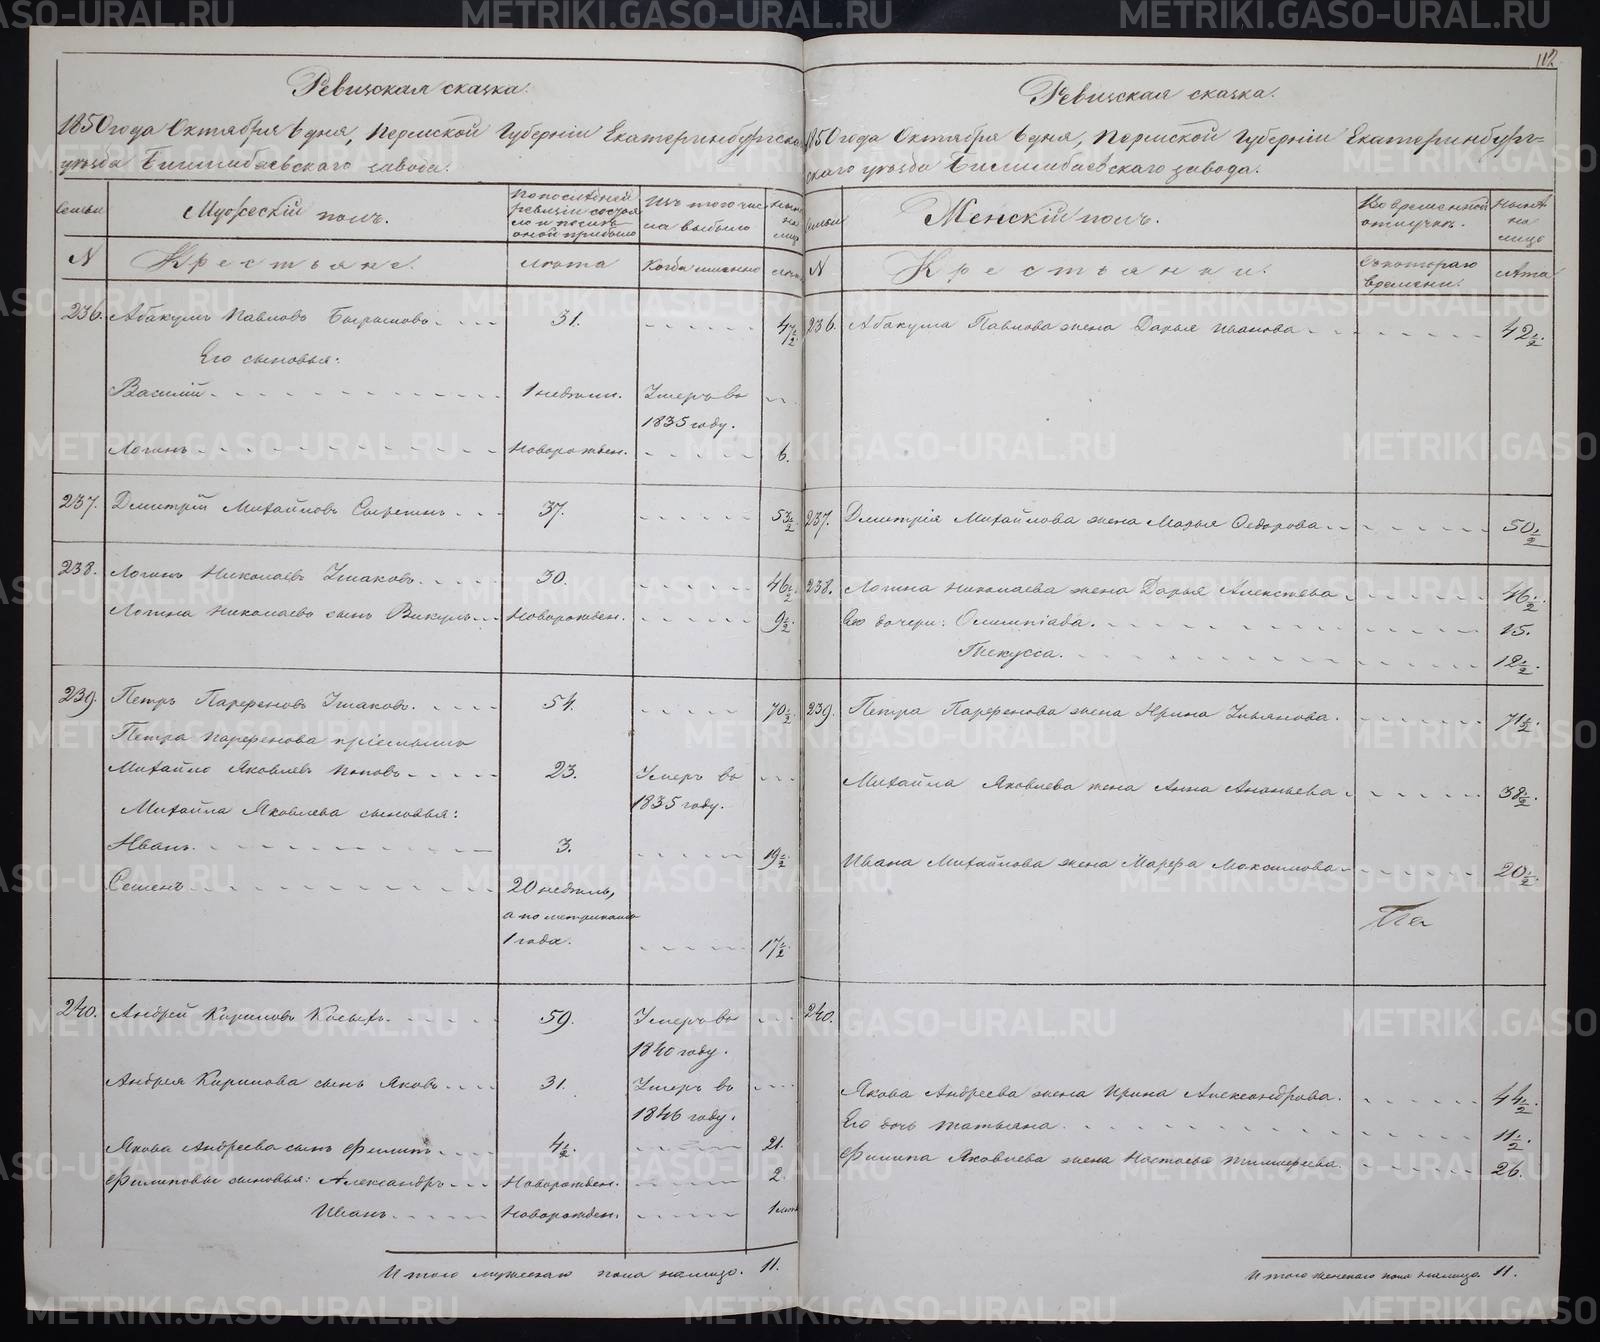 112
Ревизская сказка.
1850 года Октября 6 дня, Пермской Губернiи Екатеринбургска
уѣзда Билимбаевскаго завода.
семьи
Мужескiй полъ.
По последней ревизiи состояло и после оной прибыло
Изъ того числа выбыло
Нынѣ на лицо
N
Крестьяне.
лѣта
Когда именно
лѣта
236. Абакумъ Павловъ 31. 47 1/2
Его сыновья:
Василiй 1 недѣли. Умеръ въ
1835 году.
Логинъ Новорожден. 6.
237. Дмитрiй Михайловъ 37. 53 1/2
238. Логинъ Николаевъ Ушаковъ. 30. 46 1/2
Логина Николаева сынъ Викулъ Новорожден. 9 1/2
239. Петръ Парфеновъ Ушаковъ. 54. 70 1/2
Петра Парфенова прiемышъ
Михайло Яковлевъ Поповъ 23. Умеръ въ
1835 году.
Михайла Яковлева сыновья:
Иванъ. 3. 19 1/2
Семенъ 20 недѣль,
а по метрикамъ
1 года. 17 1/2
240. Андрей Кириловъ Косыхъ. 59. Умеръ въ
1840 году.
Андрея Кирилова сынъ Яковъ 31. Умеръ въ
1846 году.
Якова Андреева сынъ Филипъ 4 1/2. 21.
Филиповы сыновья: Александръ Новорожден. 2.
Иванъ Новорожден. 1 лѣта
Итого мужескаго пола налицо. 11.
Ревизская сказка.
1850 года Октября 6 дня, Пермской Губернiи Екатеринбург-
скаго уѣзда Билимбаевскаго завода.
семьи
Женскiй полъ.
Во временной отлучкѣ.
Нынѣ на лицо
N
Крестьянки.
Съ котораго времени.
лѣта
236. Абакума Павлова жена Дарья Иванова 42 1/2
237. Дмитрiя Михайлова жена Марья Федорова 50 1/2
238. Логина Николаева жена Дарья Алексѣева 46 1/2
Его дочери: Олимпiада. 15.
Гликусса. 12 1/2
239. Петра Парфенова жена Ирина Ульянова. 71 1/2
Михайла Яковлева жена Анна Ананьева 38 1/2
Ивана Михайлова жена Марфа Максимова 20 1/2
240.
Якова Андреева жена Ирина Александрова. 44 1/2
Его дочь Татьяна 11 1/2
Филипа Яковлева жена Настасья Тимофеева 26.
Итого женскаго пола налицо. 11.
METRIKI.GASO-URAL.RU